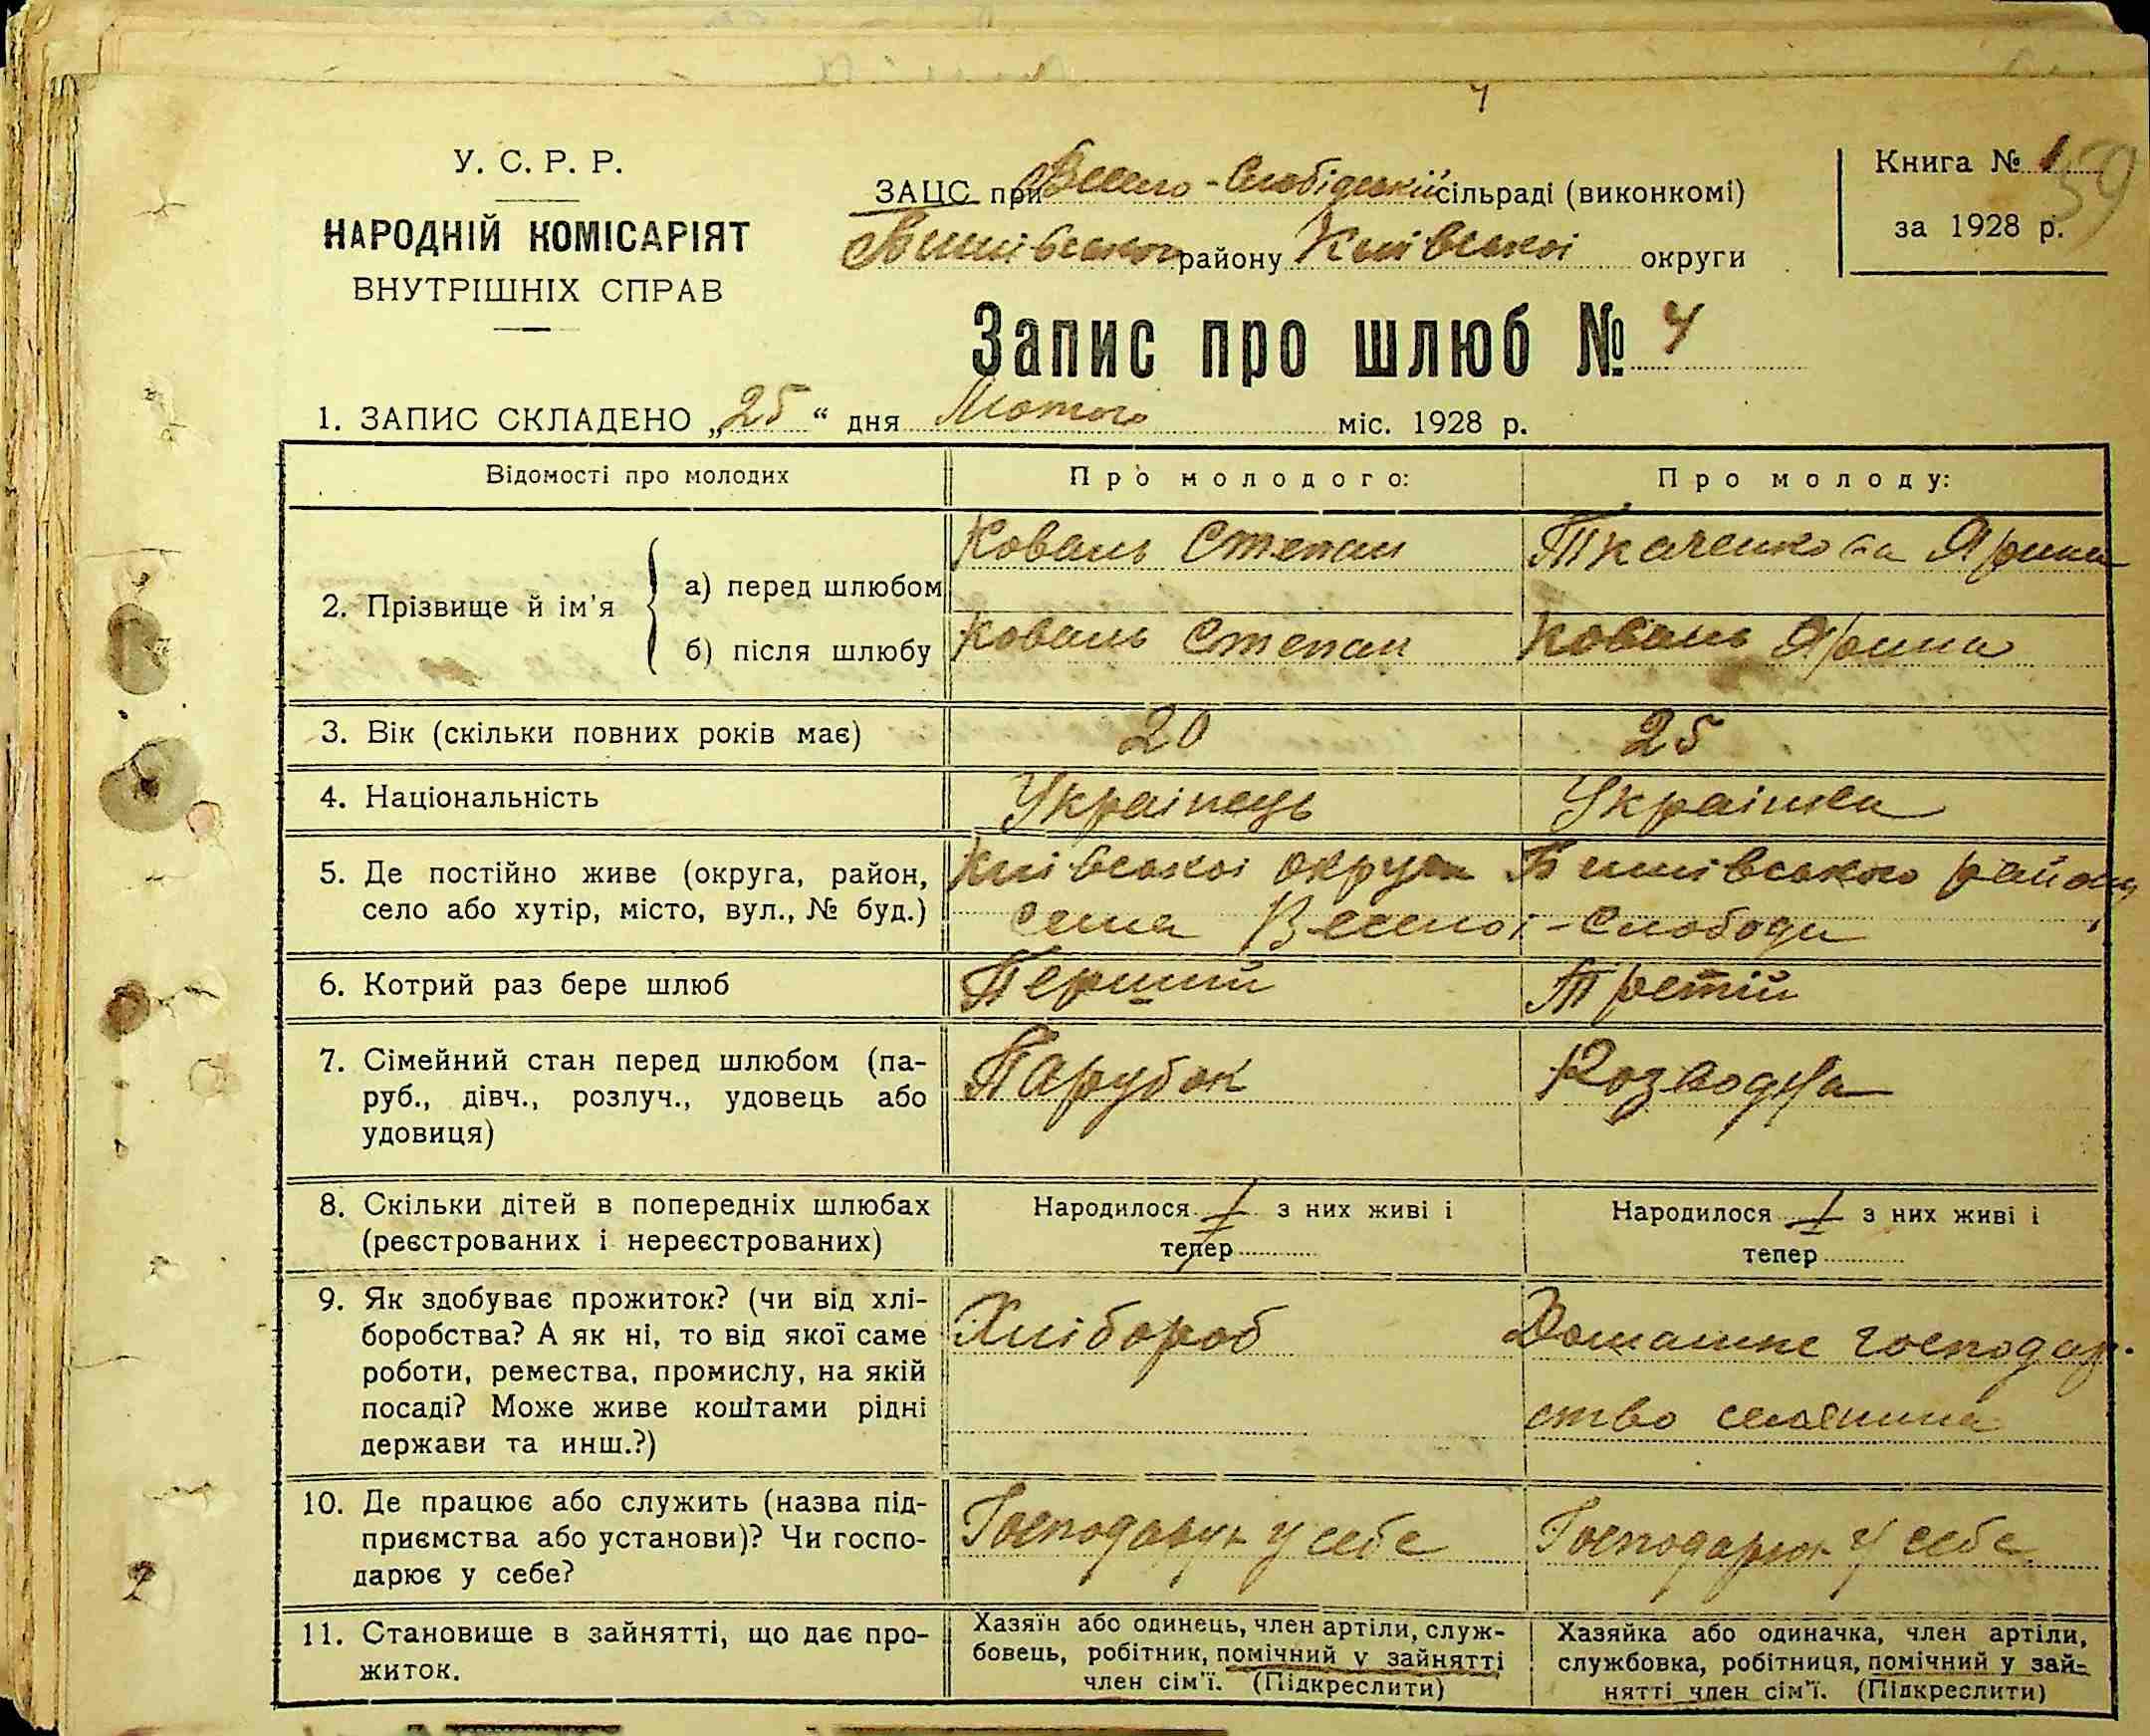 4
У. С. Р. Р.
НАРОДНІЙ КОМІСАРІЯТ
ВНУТРІШНІХ СПРАВ
ЗАЦС при Весело-Слобідській сільраді (виконкомі)
Бишівського району Київської округи
Книга № 1
59
за 1928 р.
Запис про шлюб № 4
1. ЗАПИС СКЛАДЕНО „25“ дня Лютого міс. 1928 р.
Відомості про молодих
Про молодого:
Про молоду:
2. Прізвище й ім'я
а) перед шлюбом
Коваль Степан
Ткаченкова Ярина
б) після шлюбу
Коваль Степан
Коваль Ярина
3. Вік (скільки повних років має)
20
25
4. Національність
Українець
Українка
5. Де постійно живе (округа, район,
село або хутір, місто, вул., № буд.)
Київської округи Бишівського району
села Веселої-Слободи
6. Котрий раз бере шлюб
Перший
Третій
7. Сімейний стан перед шлюбом (па-
руб., дівч., розлуч., удовець або
удовиця)
Парубок
Розводка
8. Скільки дітей в попередніх шлюбах
(реєстрованих і нереєстрованих)
Народилося з них живі і
тепер
Народилося з них живі і
тепер
9. Як здобуває прожиток? (чи від хлі-
боробства? А як ні, то від якої саме
роботи, ремества, промислу, на якій
посаді? Може живе коштами рідні
держави та инш.?)
Хлібороб
Домашнє господар-
ство селянина
10. Де працює або служить (назва під-
приємства або установи)? Чи госпо-
дарює у себе?
Господарює у себе
Господарює у себе
11. Становище в зайнятті, що дає про-
житок.
Хазяїн або одинець, член артіли, служ-
бовець, робітник, помічний у зайнятті
член сім'ї. (Підкреслити)
Хазяйка або одиначка, член артіли,
службовка, робітниця, помічний у зай-
нятті член сім'ї. (Підкреслити)
2